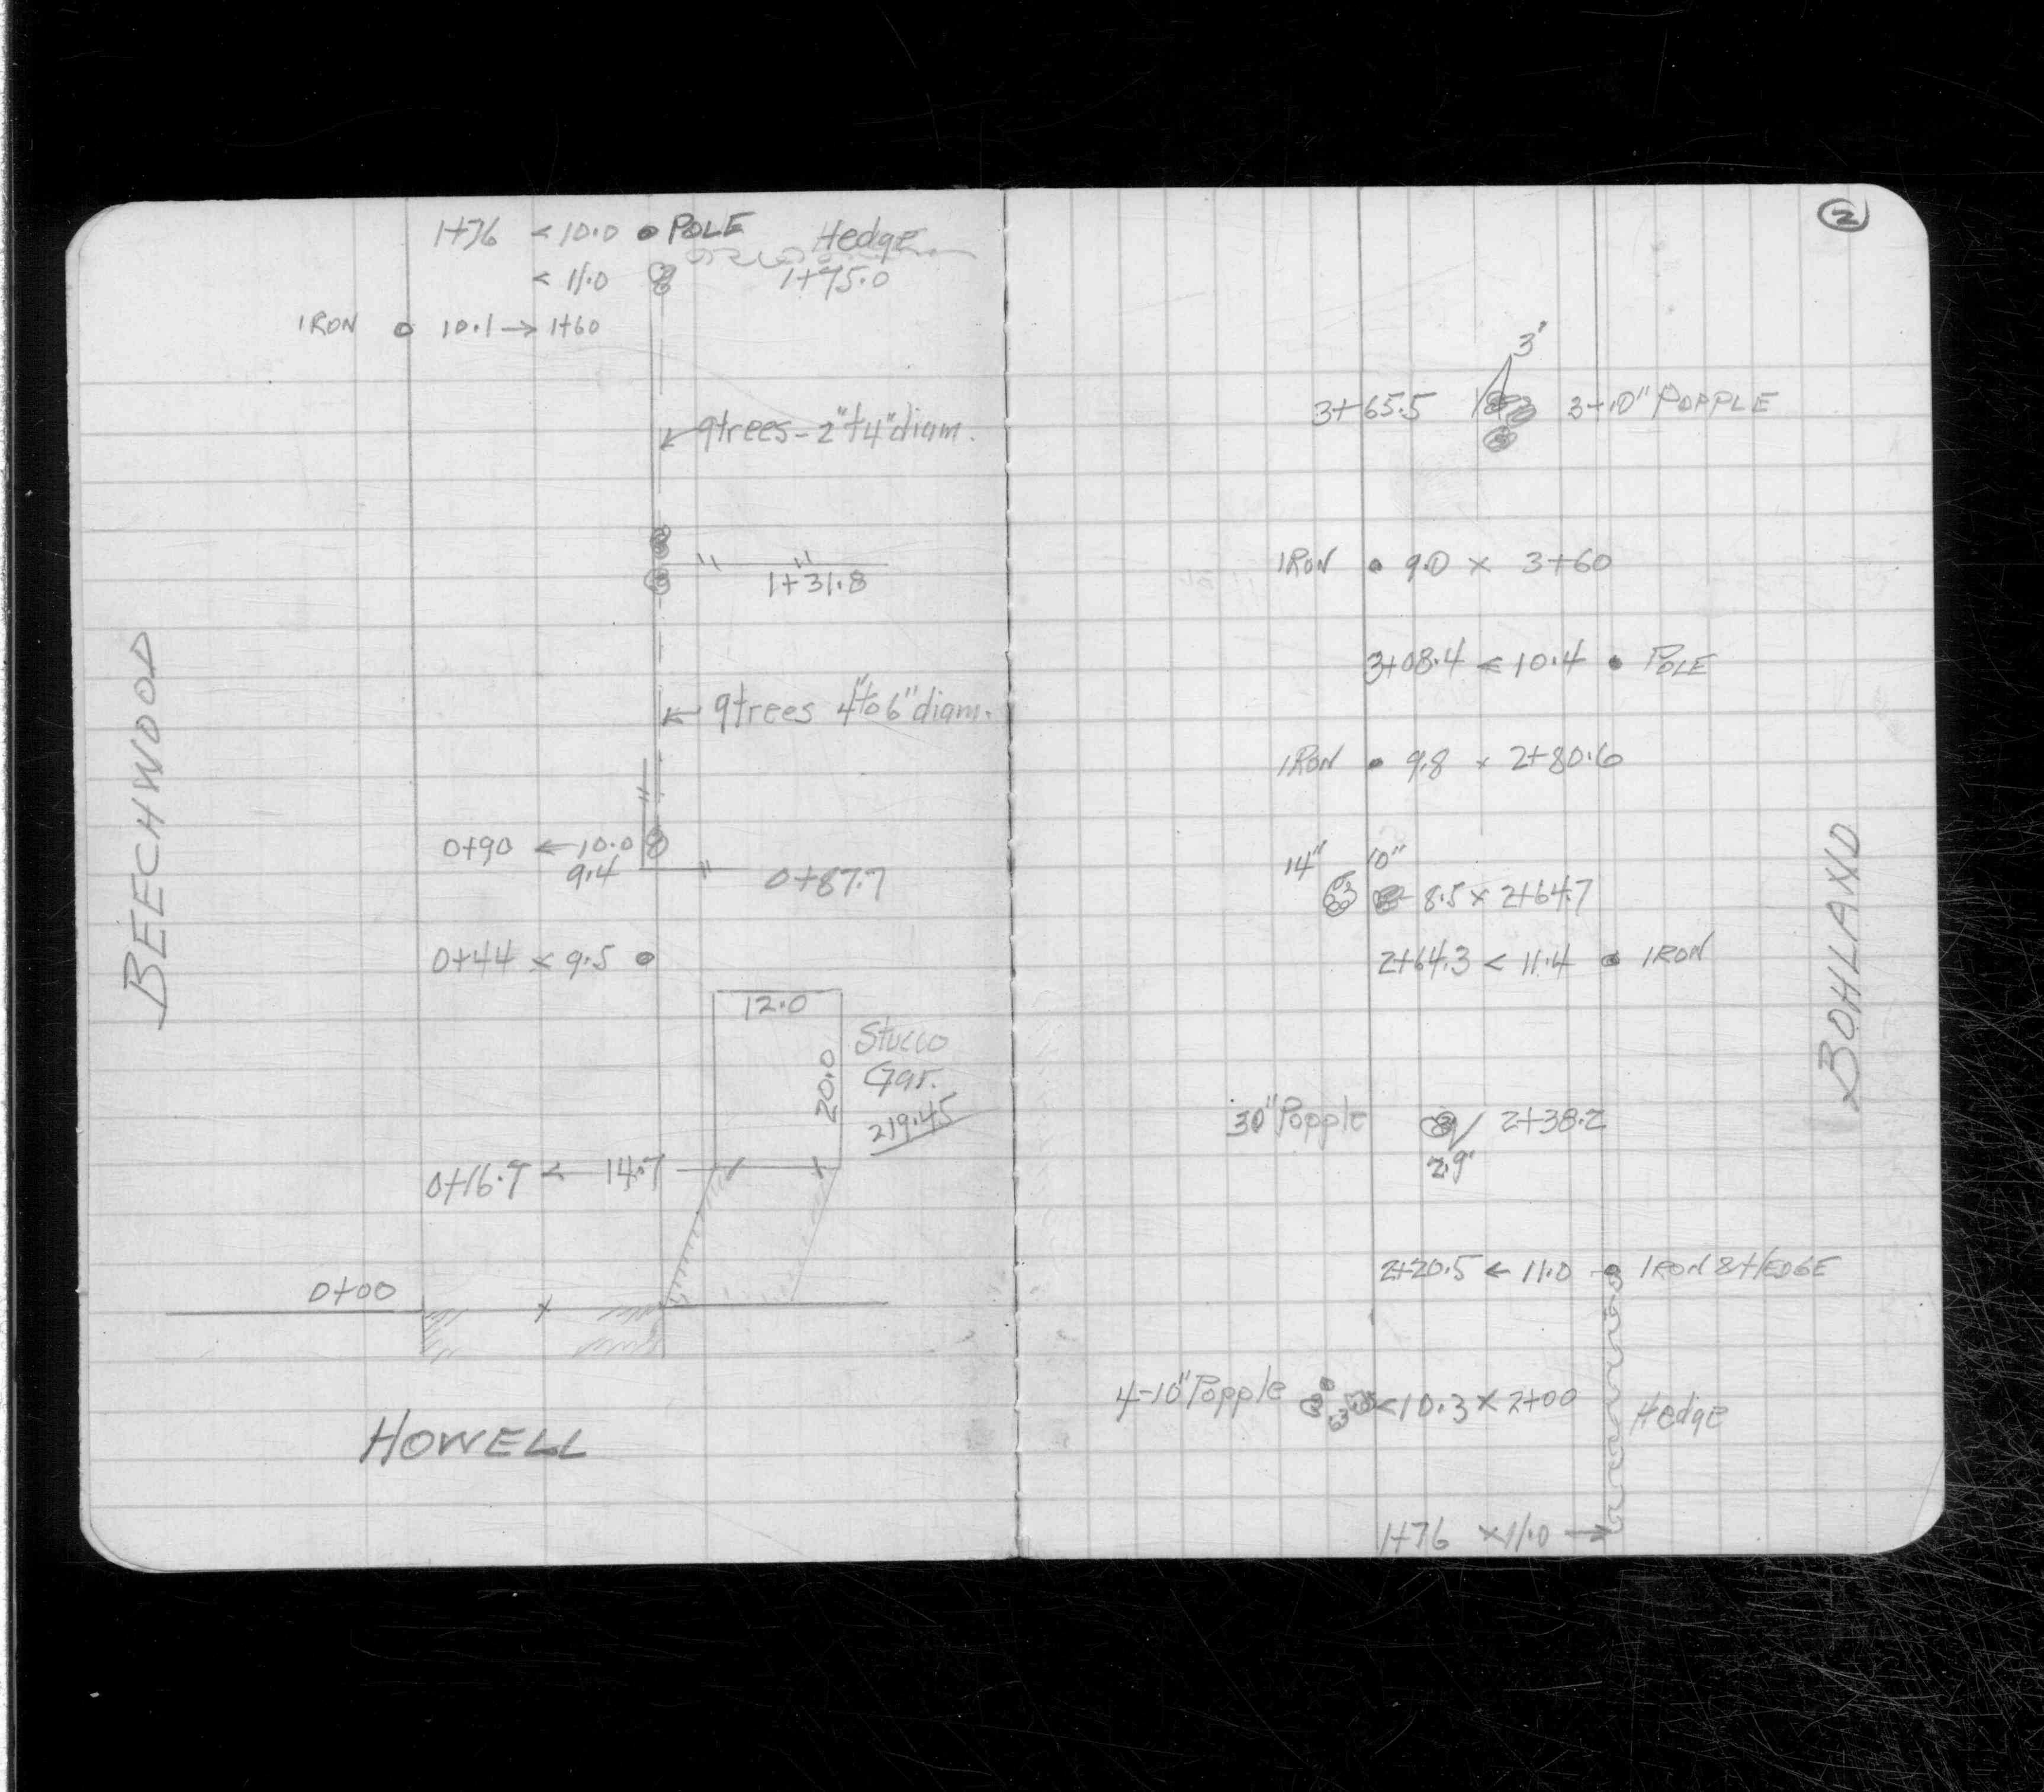 1+76 < 10.0 POLE Hedge
< 11.0 1+75.0
IRON 10.1 → 1+60
9 trees - 2" to 4" diam.
1+31.8
9 trees 4" to 6" diam.
0+90 ← 10.0
9.4 0+87.7
0+44 < 9.5
12.0
20.0
Stucco
Gar.
219.45
0+16.9 < 14.7
0+00
BEECHWOOD
HOWELL
2
3'
3+65.5 3-10" POPPLE
IRON 9.0 × 3+60
3+08.4 < 10.4 POLE
IRON 9.8 × 2+80.6
14" 10"
8.5 × 2+64.7
2+64.3 < 11.4 IRON
30" Popple 2+38.2
2.9'
2+20.5 < 11.0 IRON & HEDGE
4-10" Popple < 10.3 × 2+00
Hedge
1+76 × 11.0 →
BOHLAND